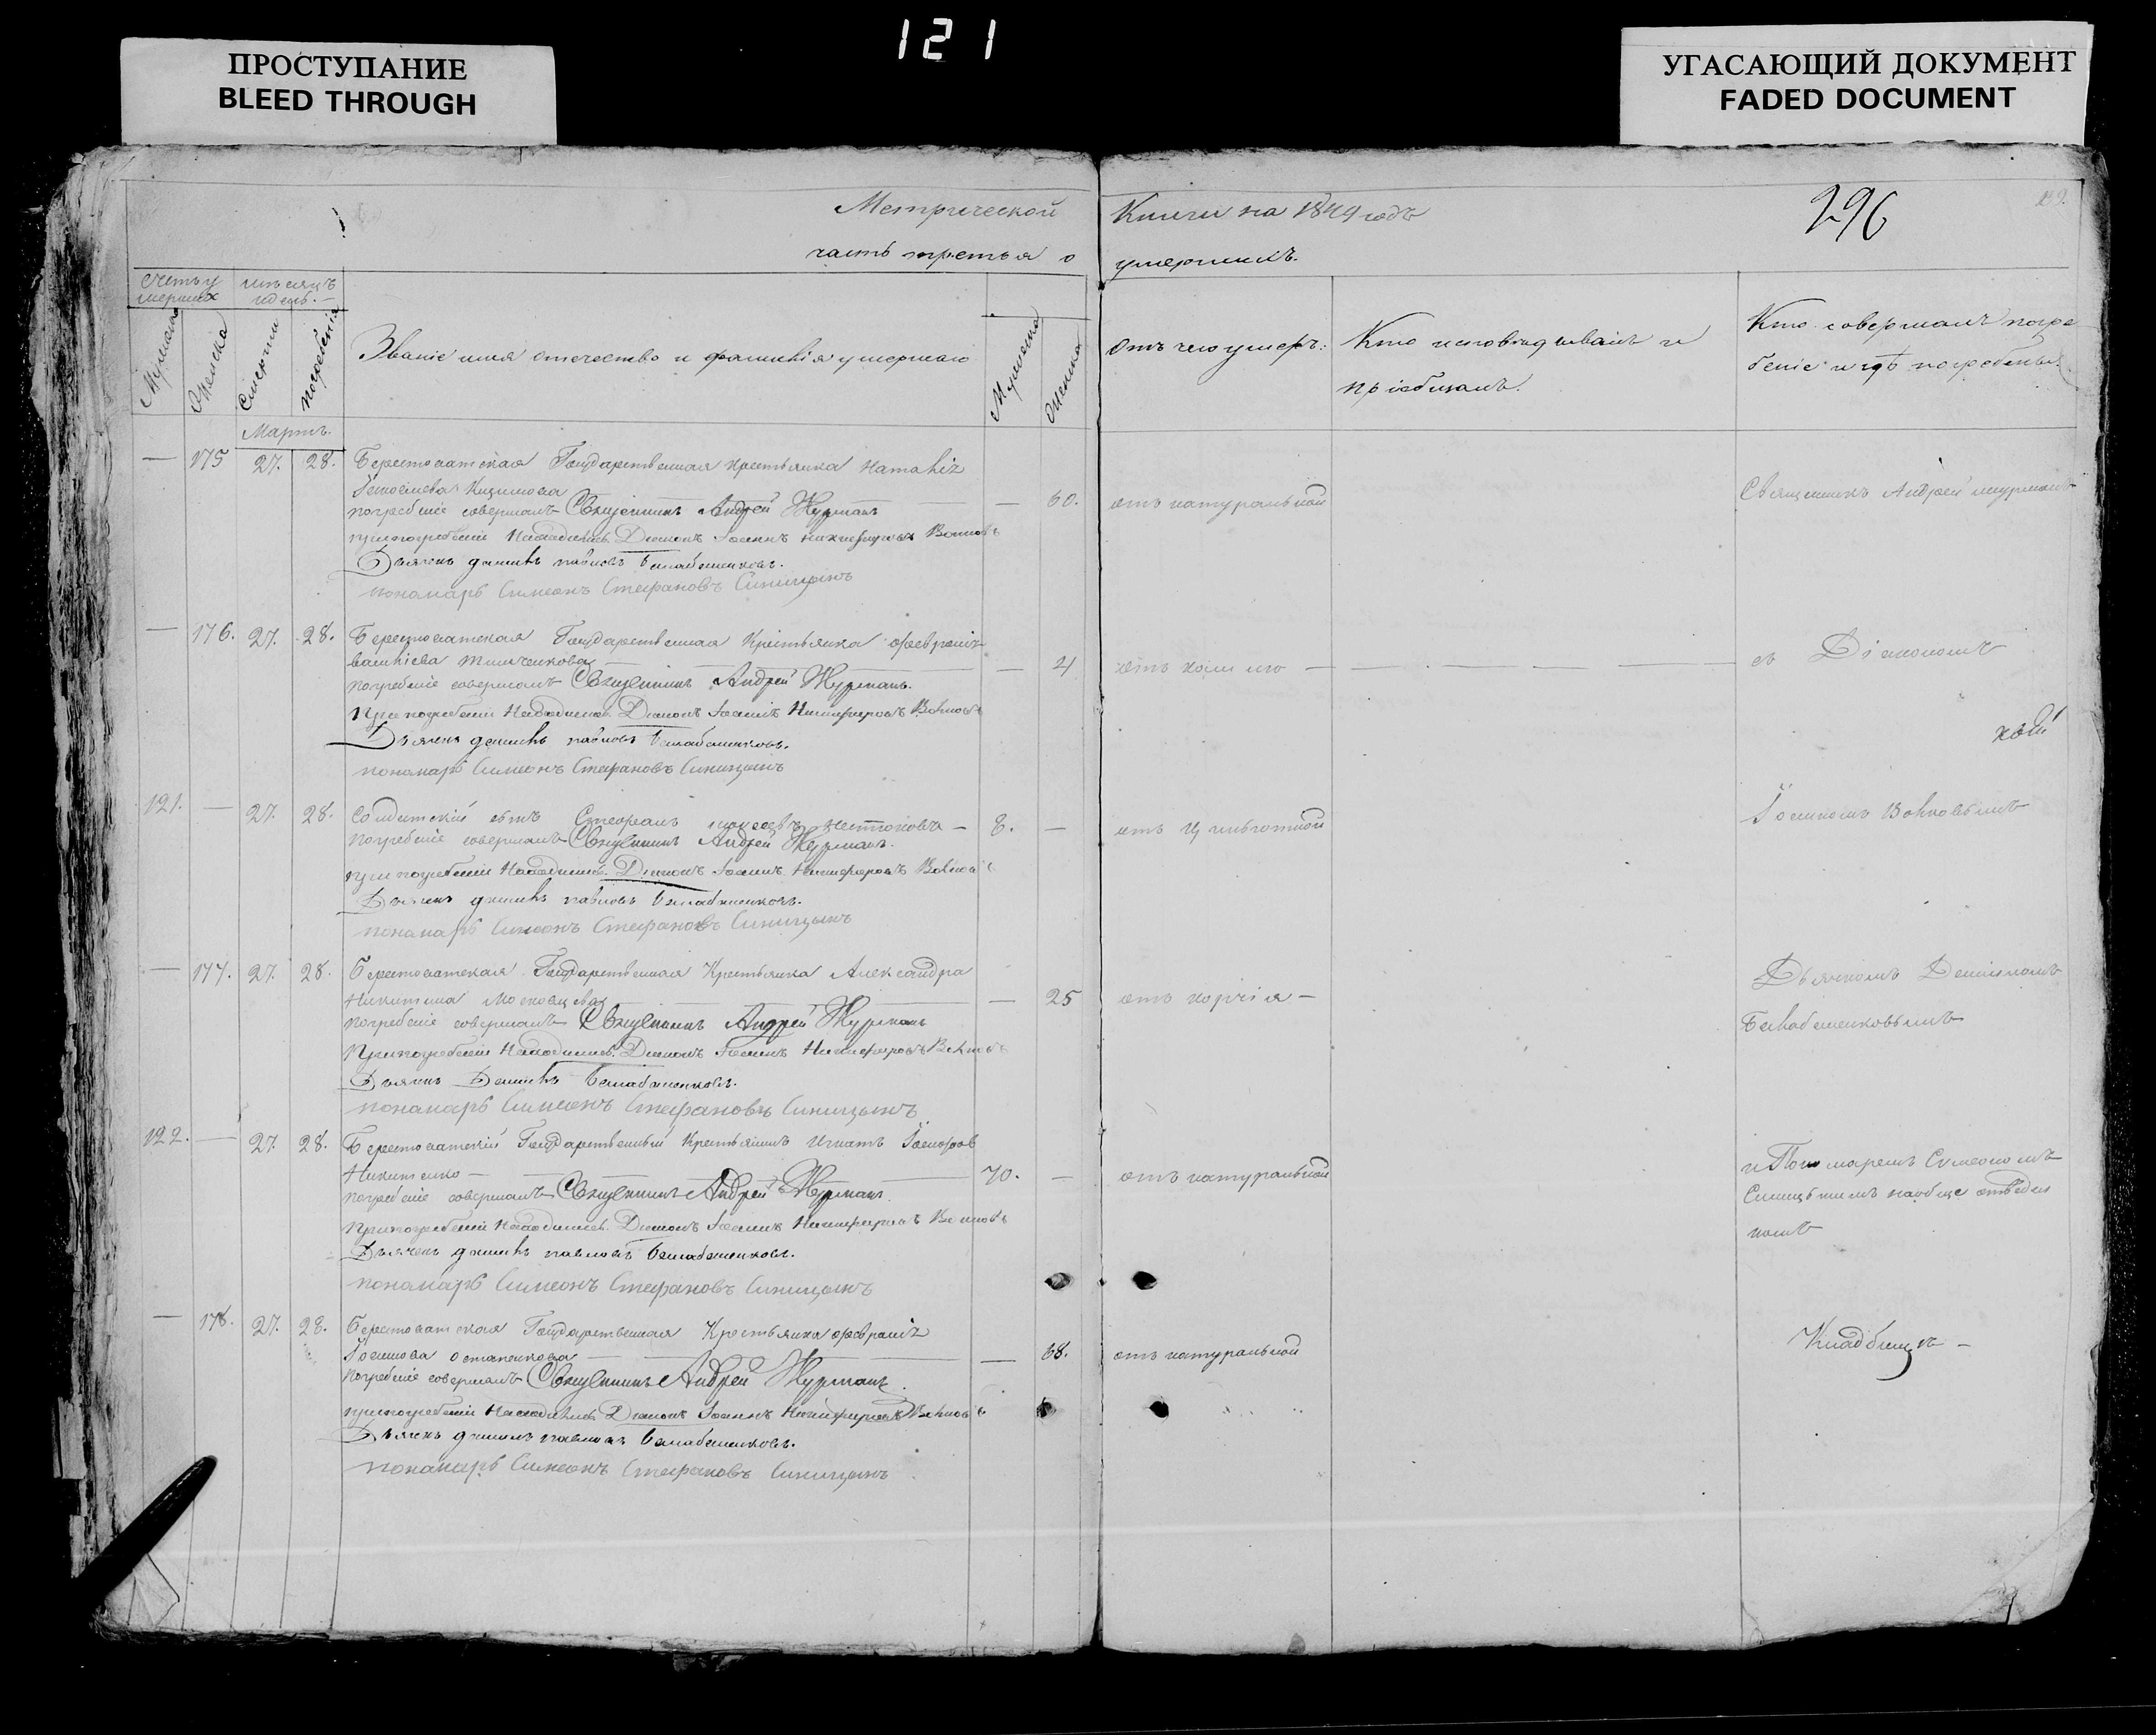 121
ПРОСТУПАНИЕ
BLEED THROUGH
УГАСАЮЩИЙ ДОКУМЕНТ
FADED DOCUMENT
Метрической Книги на 1844 годъ
296
часть третья о умершихъ.
Счетъ умершихъ
мѣсяцъ и день.
Мужеска
Женска
Смерти
погребенія
Званіе имя отечество и фамилія умершаго
Мужеска
Женска
Отъ чего умеръ:
Кто исповѣдывалъ и
пріобщалъ.
Кто совершалъ погре
беніе и гдѣ погребены.
Мартъ.
— 175 27. 28. Берестоватская Государственная крестьянка Наталія
— 60. отъ натуральной
Священникъ Андрей Журманъ
погребеніе совершалъ Священникъ Андрей Журманъ
при погребеніи находились Діаконъ Іоаннъ Никифоровъ Волковъ
Дьячекъ Даніилъ Павловъ Балабаненковъ.
пономарь Симеонъ Стефановъ Синицынъ
— 176. 27. 28. Берестоватская Государственная Крестьянка Февронія
— 4 отъ —
съ Діакономъ
погребеніе совершалъ Священникъ Андрей Журманъ.
При погребеніи находились Діаконъ Іоаннъ Никифоровъ Волковъ
Дьячекъ Даніилъ Павловъ Балабаненковъ.
пономарь Симеонъ Стефановъ Синицынъ
121. — 27. 28. Солдатскій сынъ Стефанъ
8. — отъ
Іоанномъ Волковымъ
погребеніе совершалъ Священникъ Андрей Журманъ.
при погребеніи находились Діаконъ Іоаннъ Никифоровъ Волковъ
Дьячекъ Даніилъ Павловъ Балабаненковъ.
пономарь Симеонъ Стефановъ Синицынъ
— 177. 27. 28. Берестоватская Государственная Крестьянка Александра
Никитина
— 25 отъ
Дьячкомъ Даніиломъ
Балабаненковымъ
погребеніе совершалъ Священникъ Андрей Журманъ
При погребеніи находились Діаконъ Іоаннъ Никифоровъ Волковъ
Дьячекъ Даніилъ Балабаненковъ.
пономарь Симеонъ Стефановъ Синицынъ
122. — 27. 28. Берестоватскій Государственный Крестьянинъ Игнатъ
Никитенко —
70. — отъ натуральной
и Пономаремъ Симеономъ
Синицынымъ на обще отведен
номъ
погребеніе совершалъ Священникъ Андрей Журманъ
При погребеніи находились Діаконъ Іоаннъ Никифоровъ Волковъ
Дьячекъ Даніилъ Павловъ Балабаненковъ.
пономарь Симеонъ Стефановъ Синицынъ
— 178. 27. 28. Берестоватская Государственная Крестьянка Февронія
Остапенкова
— 68. отъ натуральной
Кладбищѣ —
Погребеніе совершалъ Священникъ Андрей Журманъ
при погребеніи находились Діаконъ Іоаннъ Никифоровъ Волковъ
Дьячекъ Даніилъ Павловъ Балабаненковъ.
пономарь Симеонъ Стефановъ Синицынъ